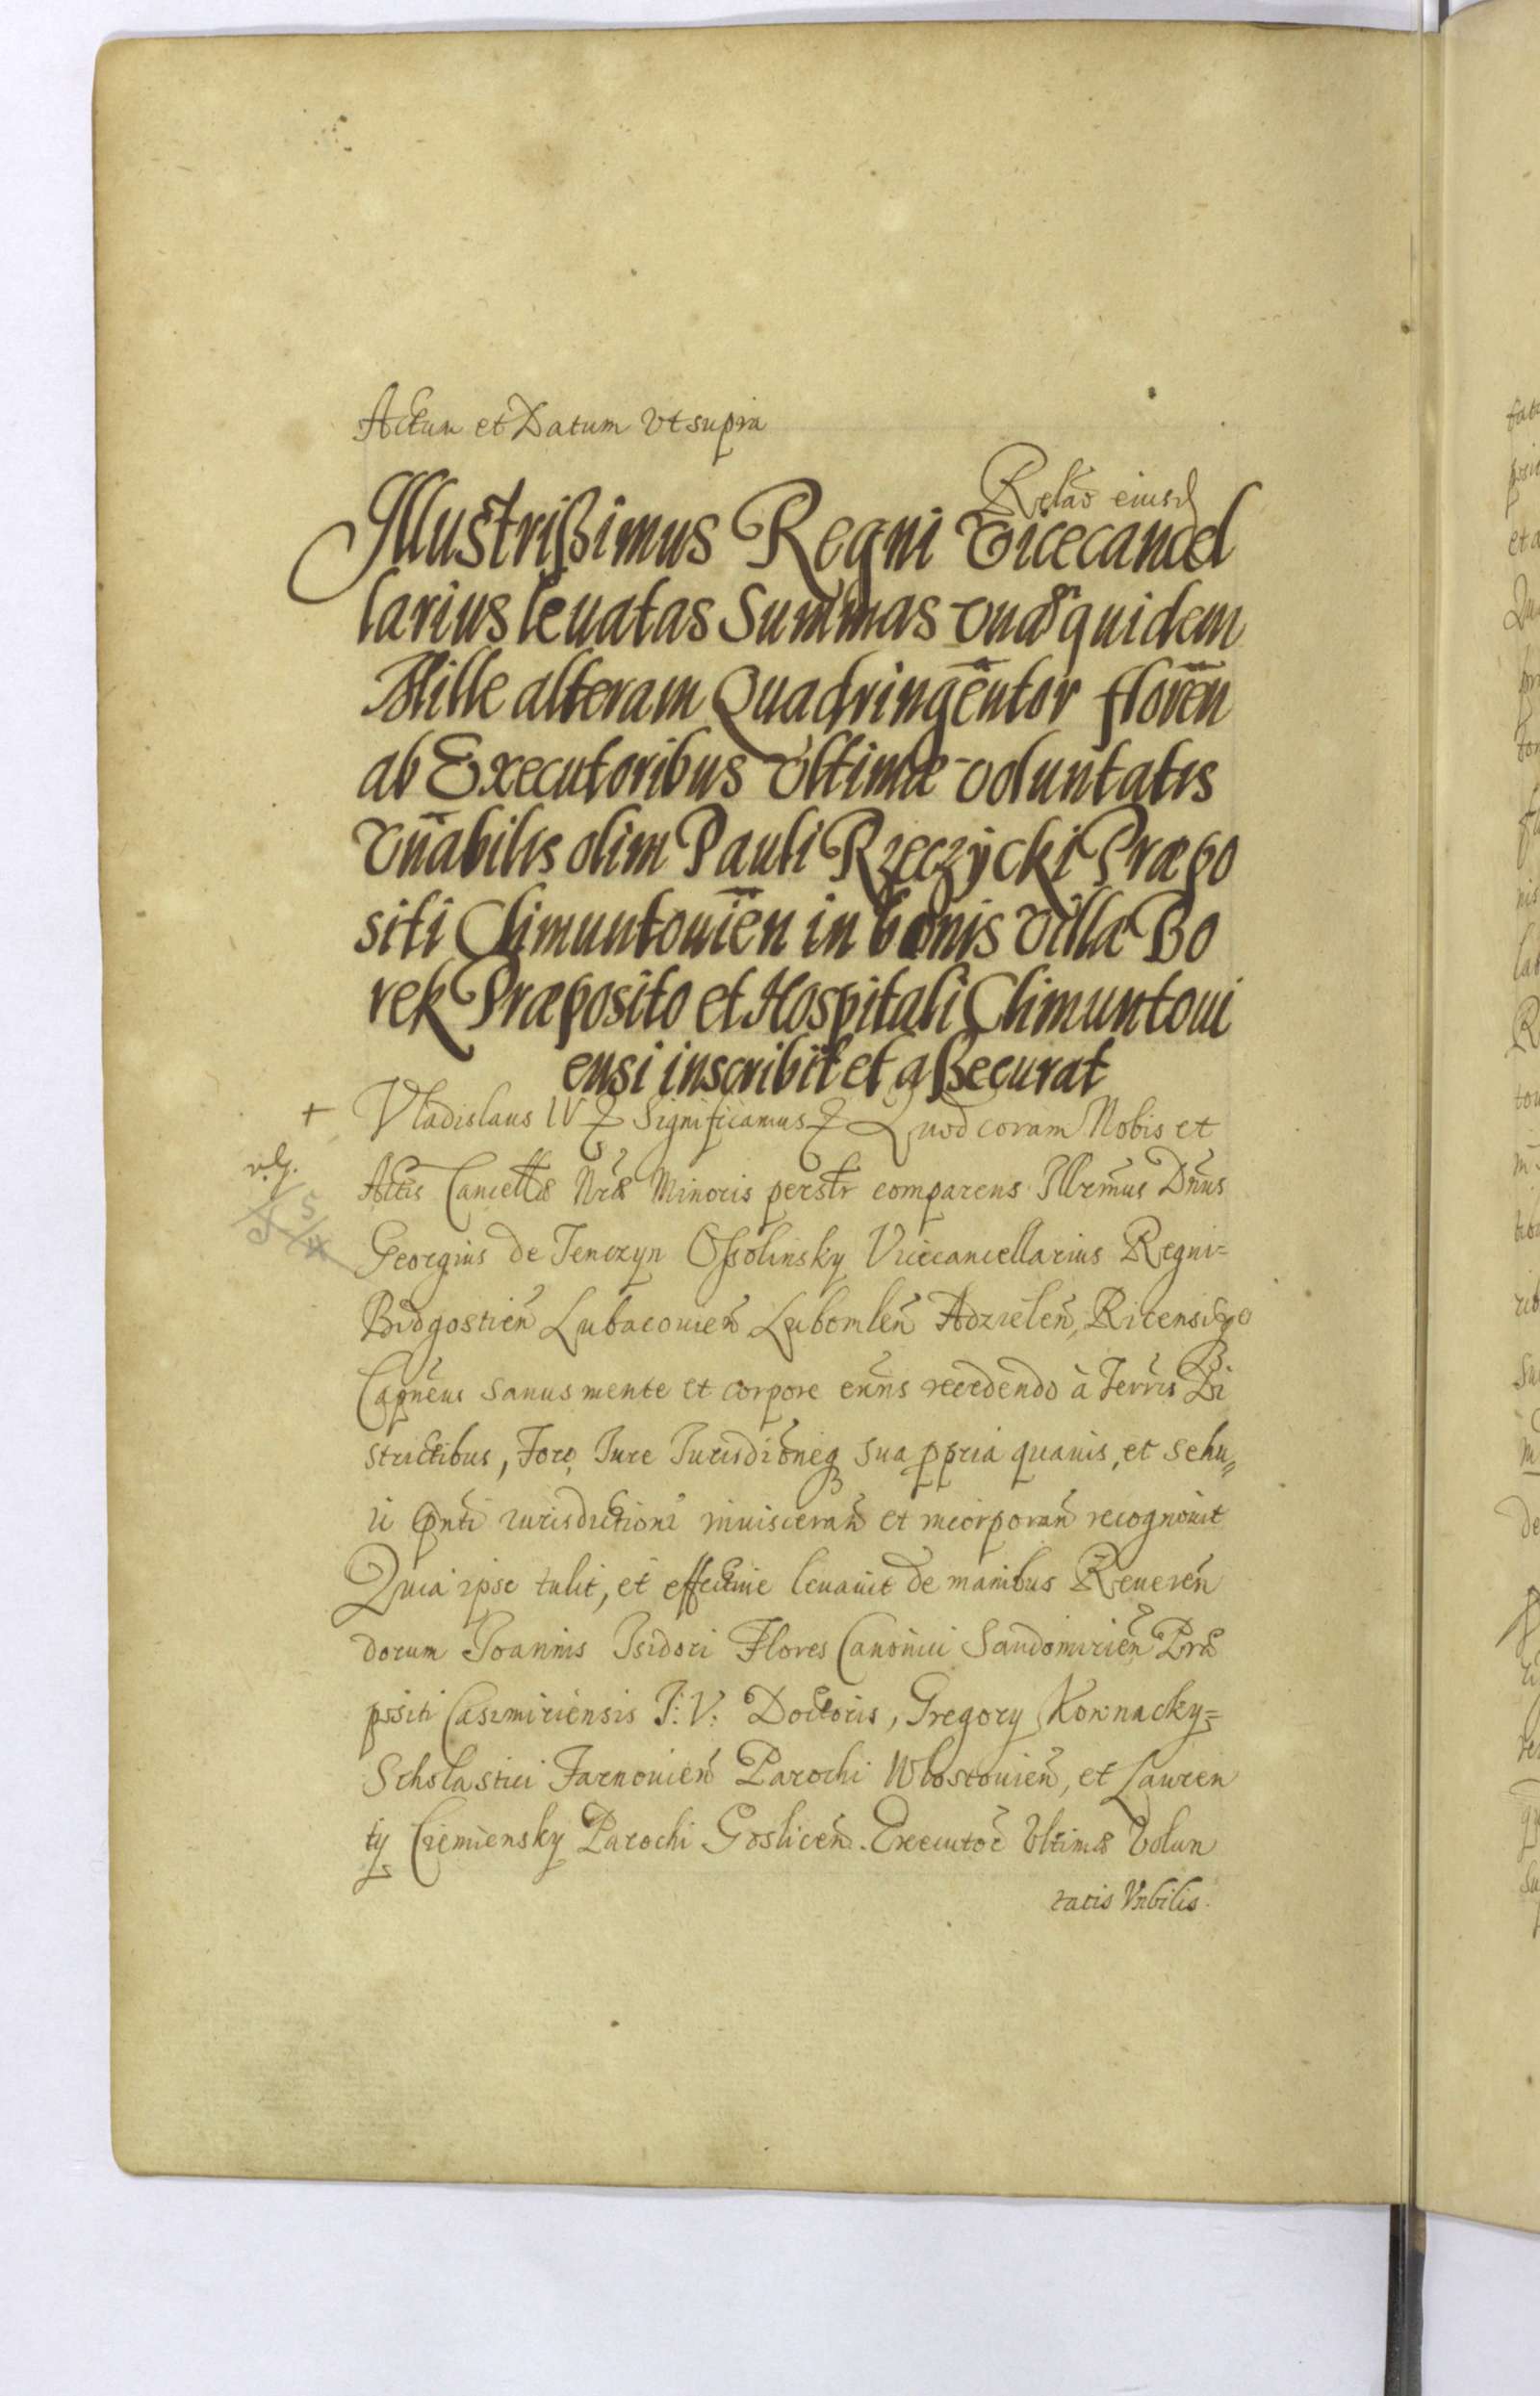 Actum et Datum Vt supra
Relao eiusd
Illustrißimus Regni Vicecancel
larius leuatas Summas vna quidem
Mille alteram Quadringentor floren
ab Executoribus Vltimæ voluntatis
Vnabilis olim Pauli Rzeczÿcki Præpo
siti Climuntouien in bonis Villæ Bo
rek Præposito et Hospitali Climuntoui
ensi inscribit et aßecurat
+ Vladislaus IV Significamus Quod coram Nobis et
Actis Cancellæ Nræ Minoris personlr comparens Illrmus Dnns
Georgius de Tenczyn Oßolinsky Vicecancellarius Regni=
Bidgostien Lubacouien Lubomlen Adzielen, Ricensisq
Capneus sanus mente et corpore exns recedendo à Terris Di
strictibus, Foro, Iure Iurisdioneq sua ppria quauis, et se hu„
ic pnti iurisdictioni inuisceran et incorporan recognouit
Quia ipse tulit, et effectiue leuauit de manibus Reueren
dorum Joannis Isidori Flores Canonici Sandomirien Præ
positi Casimiriensis I: V: Doctoris, Gregory Kornacky=
Scholastici Tarnouien Parochi Wlostouien, et Lauren
ty Ciemiensky Parochi Goslicen. Executor Vltimæ Volun
tatis Vnbilis